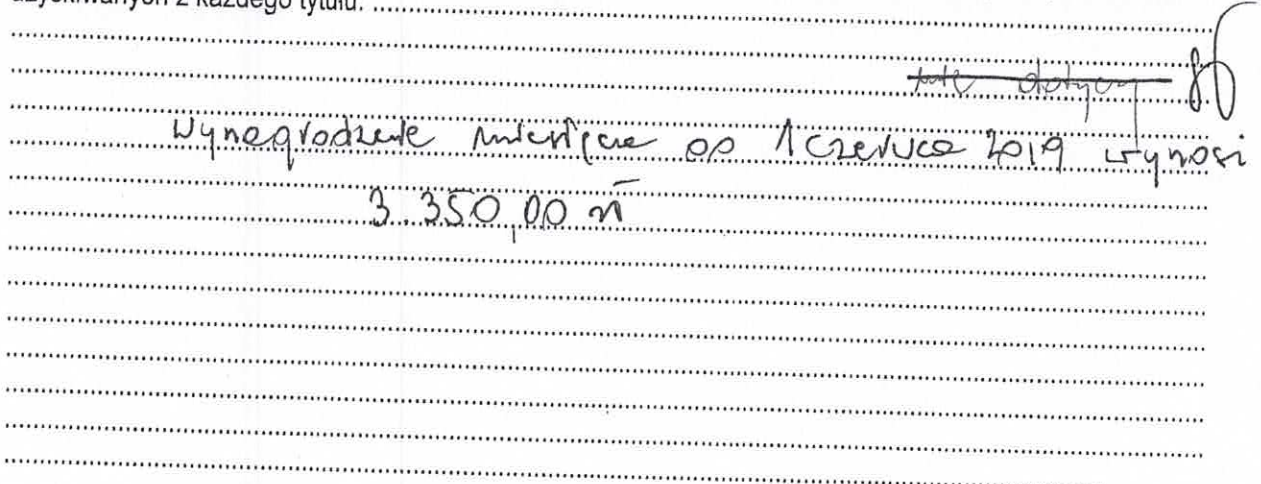 uzyskiwanych z każdego tytułu:
nie dotyczy
Wynagrodzenie miesięczne od 1 czerwca 2019 wynosi
3.350,00 zł